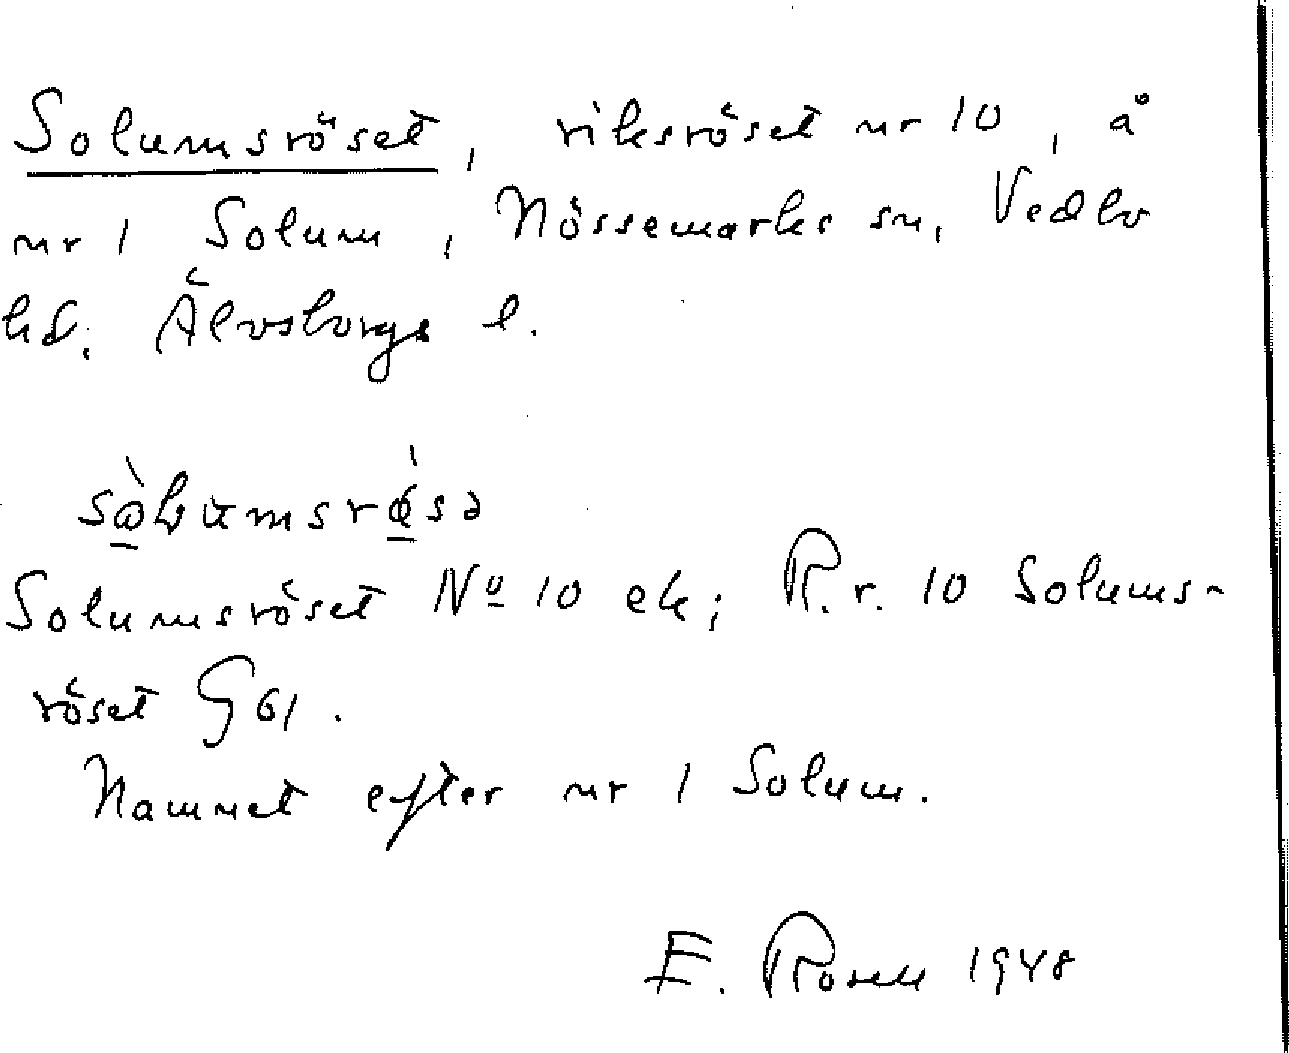 Solumsröset, riksröset nr 10, å
nr 1 Solum, Nössemarks sn, Vedbo
hd. Älvsborgs l.
Solumsröset Nº 10 ek; R.r. 10 Solums-
röset G 61.
Namnet efter nr 1 Solum.
E. Rosell 1948